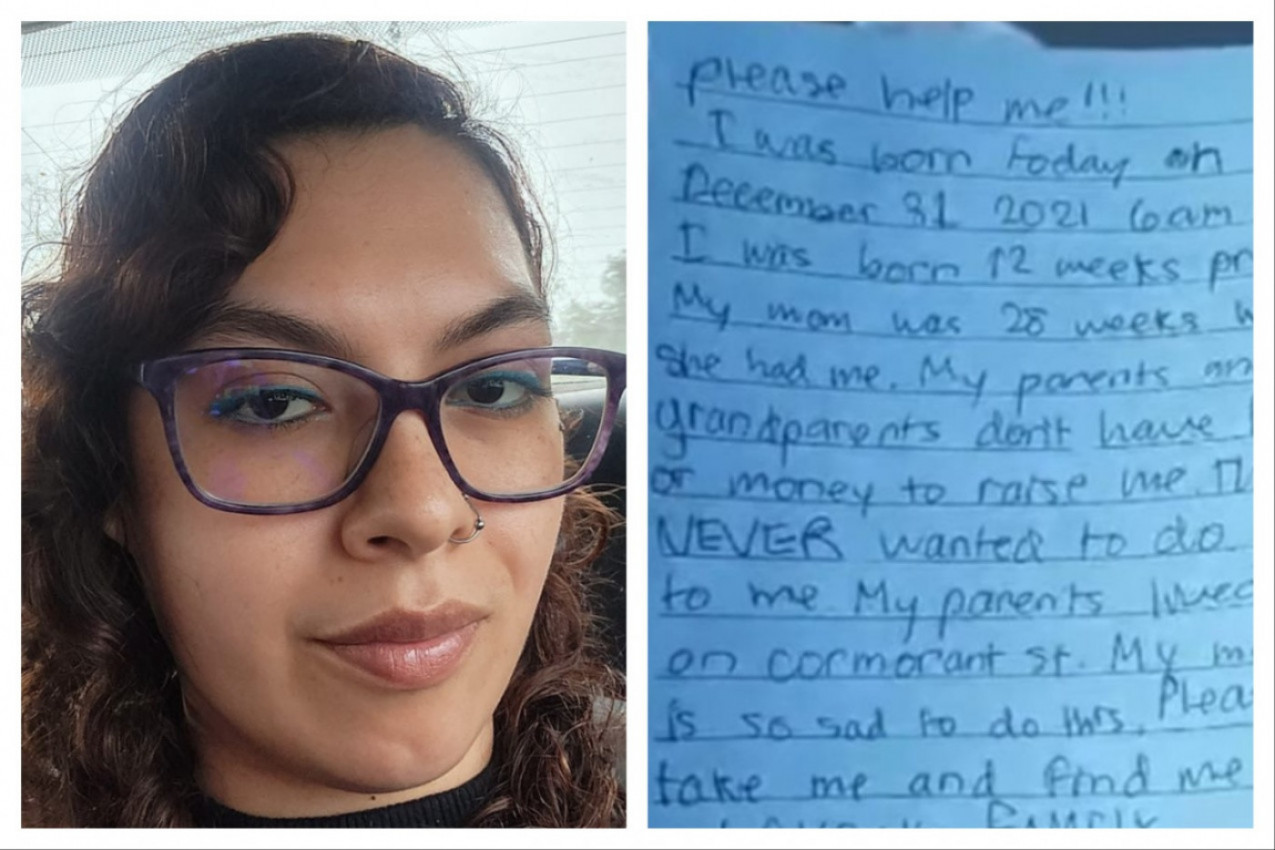 please help me!!!
I was born today on
December 31 2021 6am
I was born 12 weeks pr
My mom was 28 weeks w
she had me. My parents an
grandparents don't have
or money to raise me.
NEVER wanted to do
to me My parents lived
on cormorant st. My m
is so sad to do this. Plea
take me and find me
Family